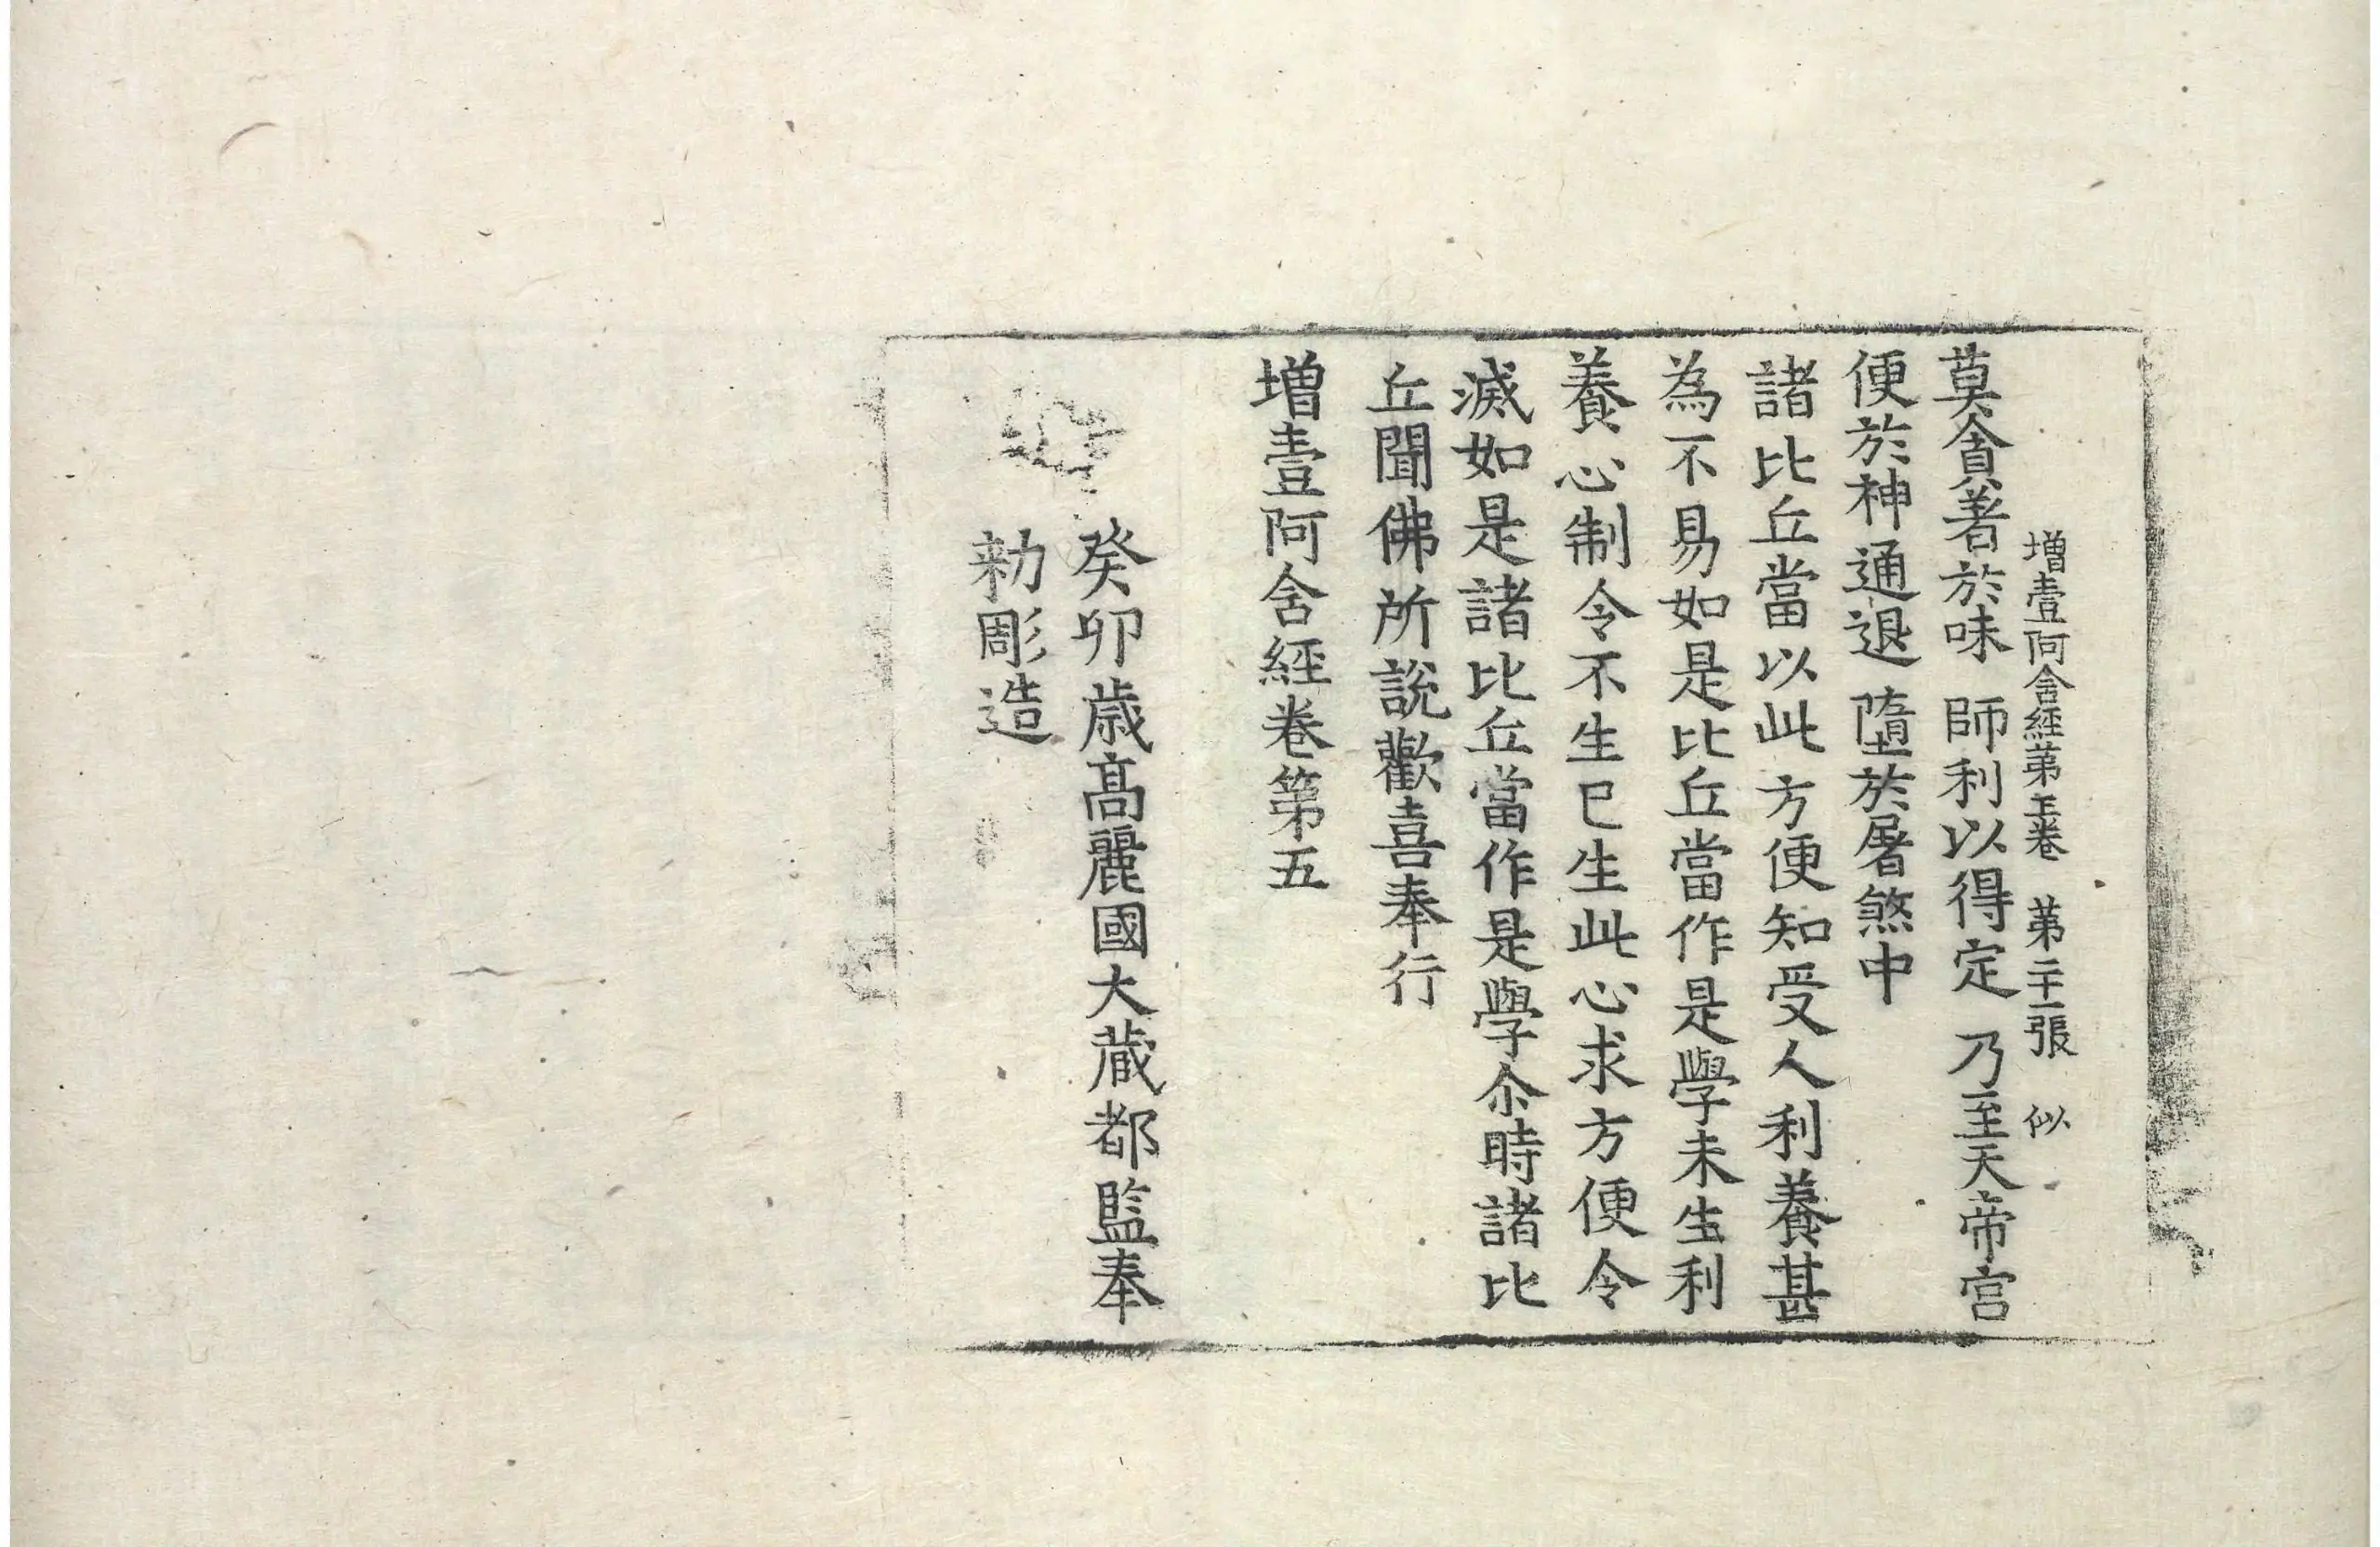 增壹阿含經第五卷　第二十一張　似
莫貪著於味　師利以得定　乃至天帝宮
便於神通退　墮於屠煞中
諸比丘當以此方便知受人利養甚
為不易如是比丘當作是學未生利
養心制令不生已生此心求方便令
滅如是諸比丘當作是學尒時諸比
丘聞佛所說歡喜奉行
增壹阿含經卷第五
癸卯歲高麗國大藏都監奉
勑彫造